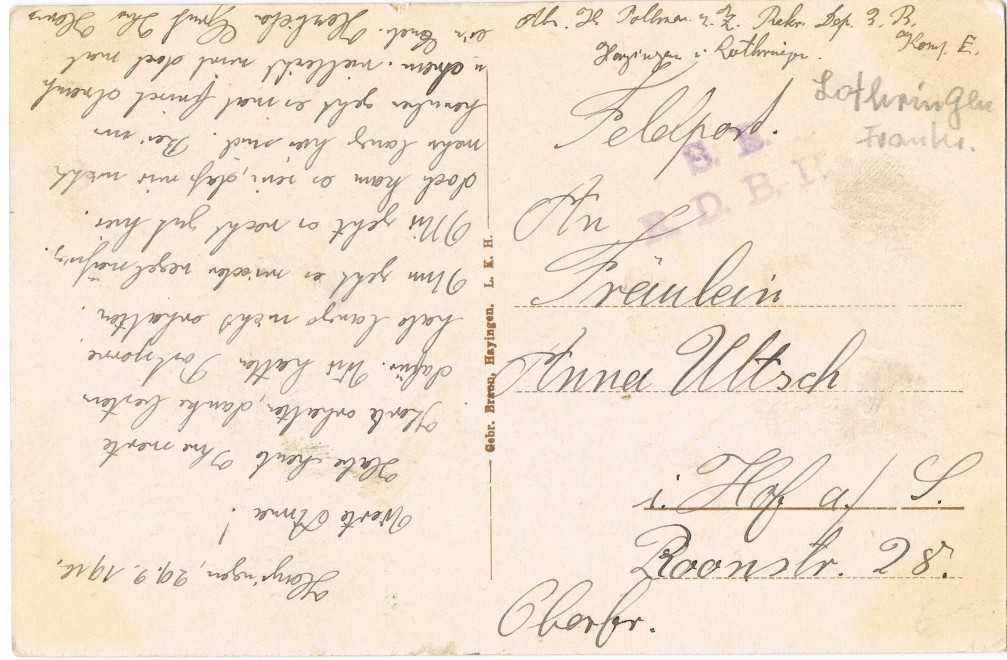 Abs. H. Pollman z. Z. Rekr. Dep. 3. B.
Komp. I.
Hayingen i. Lothringen.
Lothringen
Frankr.
Feldpost.
S. B.
R. D. B. I.
An
Fräulein
Anna Ultsch
i. Hof a/ S.
Roonstr. 28.
Oberfr.
Gebr. Braun, Hayingen. L. K. H.
Hayingen, 29.9.1916.
Werte Anna!
Habe heute Ihre werte
Karte erhalten, danke bestens
dafür. Wir hatten Postsperre.
habe lange nichts erhalten.
Nun geht es wieder regelmäßig.
Mir geht es recht gut hier.
doch kann es sein, daß wir nicht
mehr lange hier sind. Bei uns
herüben geht es mal hinüber
u. vielleicht wird doch mal
ein Ende. Herzliche Grüß Ihr Hans